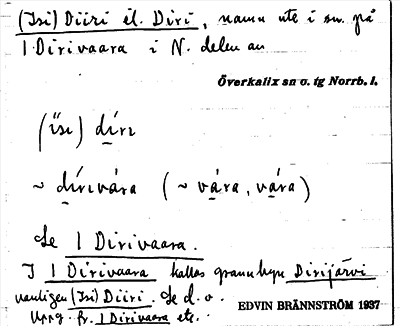 (Isi) Diiri el. Diri, namn ute i sn. på
1 Dirivaara i N. delen av
Överkalix sn o. tg Norrb. l.
(īsı) dı́rı
~ dı́rıvára (~ vára, vára)
Se 1 Dirivaara.
I 1 Dirivaara kallas grannbyn Dirijärvi
vanligen (Isi) Diiri. Se d. o.
Uppg. fr. 1 Dirivaara etc.
EDVIN BRÄNNSTRÖM 1937